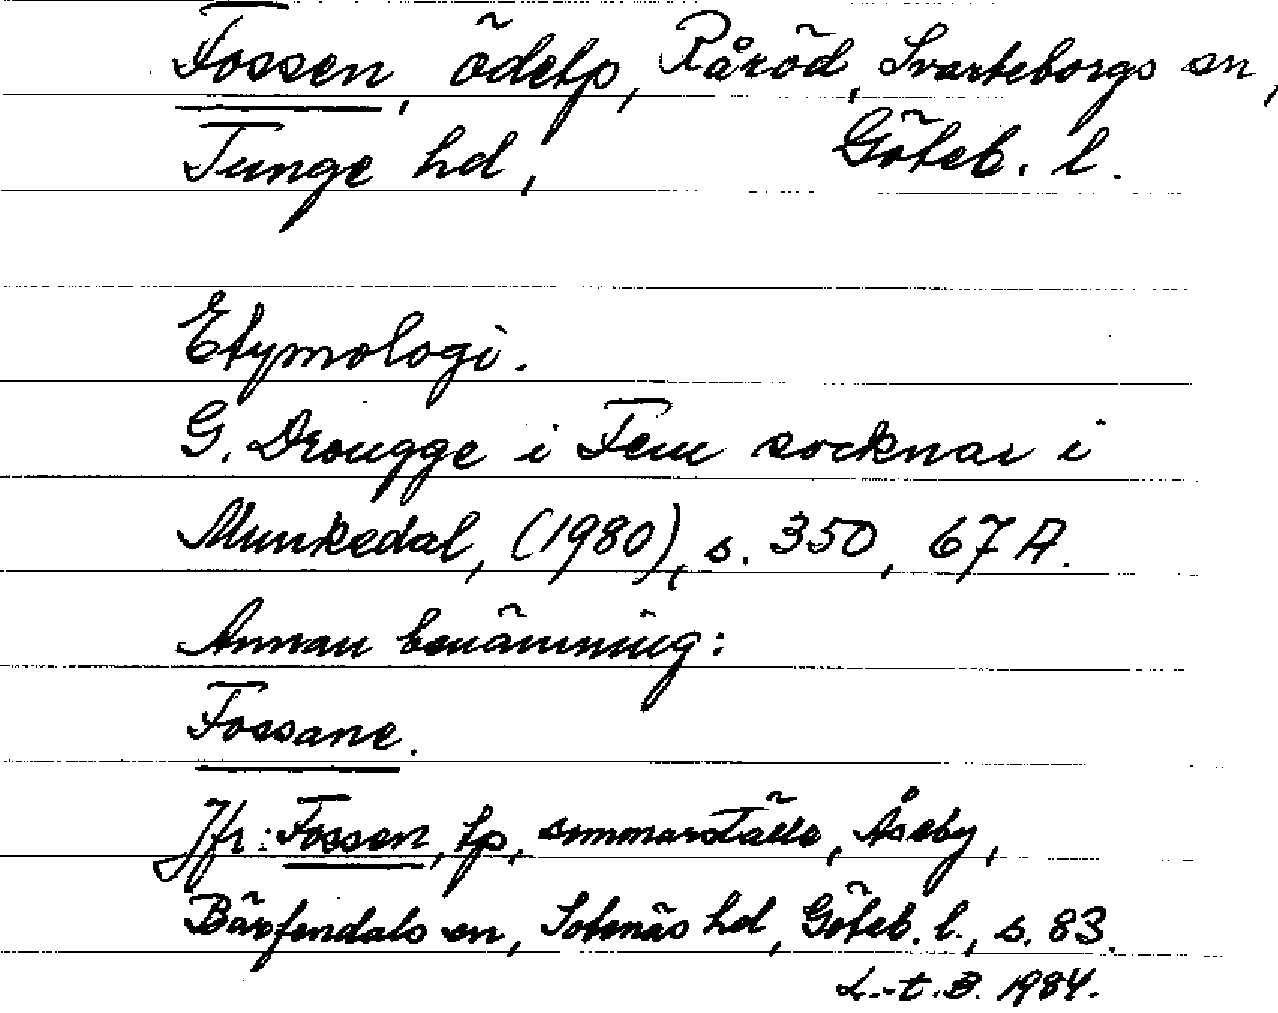 Fossen, ödetp, Råröd, Svarteborgs sn,
Tunge hd, Göteb. l.
Etymologi.
G. Drougge i Fem socknar i
Munkedal, (1980), s. 350, 67 A.
Annan benämning:
Fossane.
Jfr: Fossen, tp, sommarställe, Åseby,
Bärfendals sn, Sotenäs hd, Göteb. l., s. 83.
L.-t. B. 1984.